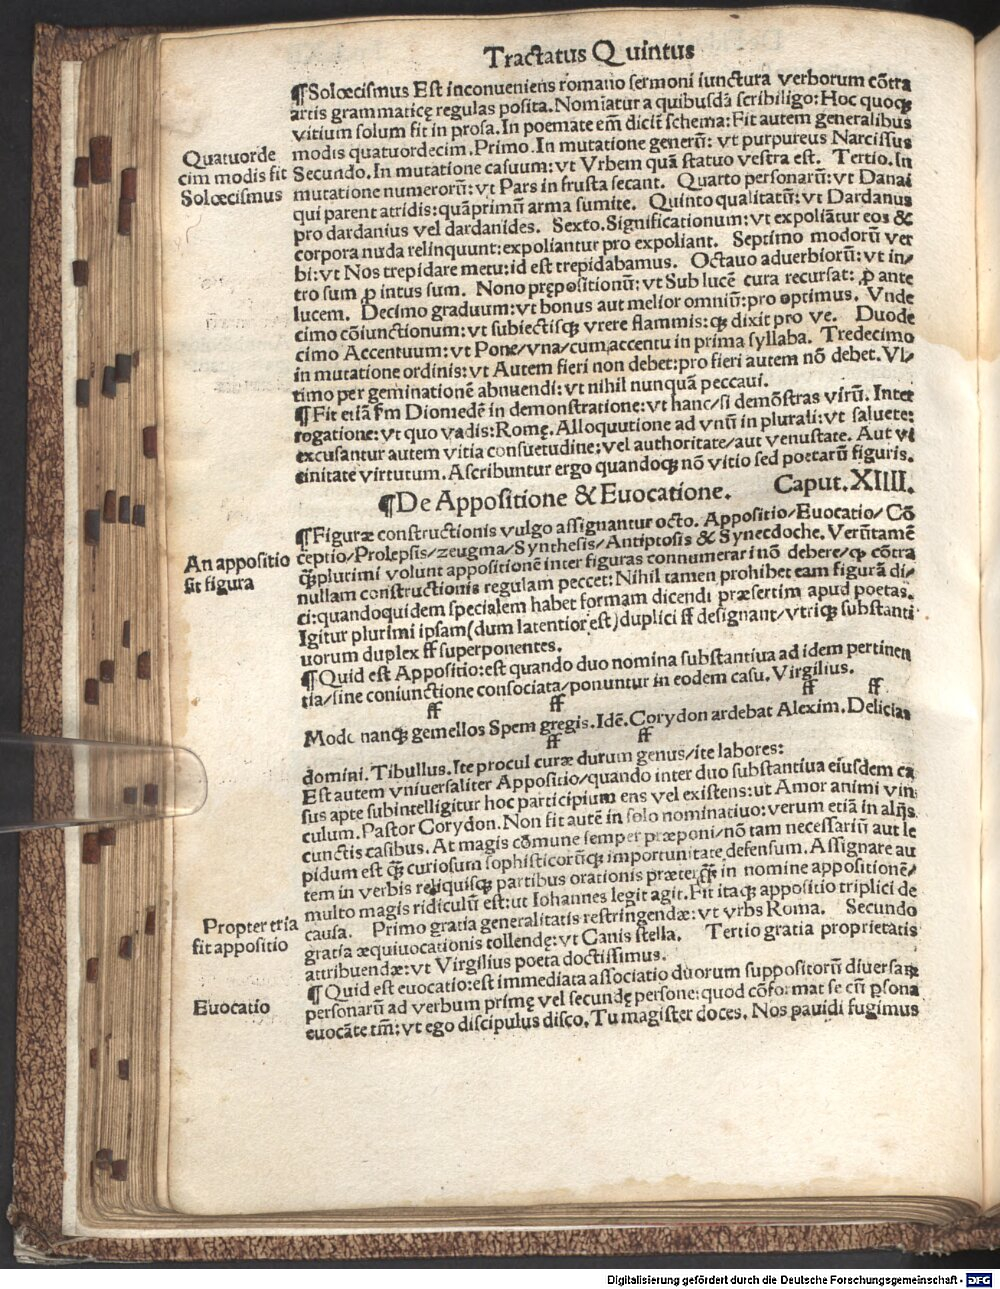 Tractatus Quintus
¶Solœcismus Est inconueniens romano sermoni iunctura verborum cõtra
artis grammaticę regulas posita. Nomiatur a quibusdã scribiligo: Hoc quoqꝫ
vitium solum fit in prosa. In poemate em̃ dicit̃ schema: Fit autem generalibus
modis quatuordecim. Primo. In mutatione generũ: vt purpureus Narcissus
Quatuorde
cim modis fit
Solœcismus
Secundo. In mutatione casuum: vt Vrbem quã statuo vestra est. Tertio. In
mutatione numerorũ: vt Pars in frusta secant. Quarto personarũ: vt Danai
qui parent atridis: quãprimũ arma sumite. Quinto qualitatũ: vt Dardanus
pro dardanius vel dardanides. Sexto. Significationum: vt expoliãtur eos &
corpora nuda relinquunt: expoliantur pro expoliant. Septimo modorũ ver
bi: vt Nos trepidare metu: id est trepidabamus. Octauo aduerbiorũ: vt in/
tro sum ꝓ intus sum. Nono prępositionũ: vt Sub lucẽ cura recursat: ꝓ ante
lucem. Decimo graduum: vt bonus aut melior omniũ: pro optimus. Vnde
cimo cõiunctionum: vt subiectisqꝫ vrere flammis: qꝫ dixit pro ve. Duode
cimo Accentuum: vt Pone/vna/cum, accentu in prima syllaba. Tredecimo
in mutatione ordinis: vt Autem fieri non debet: pro fieri autem nõ debet. Vl/
timo per geminationẽ abnuendi: vt nihil nunquã peccaui.
¶Fit etiã ẜm Diomedẽ in demonstratione: vt hanc/si demõstras virũ. Inter
rogatione: vt quo vadis: Romę. Alloquutione ad vnũ in plurali: vt saluete:
excusantur autem vitia consuetudine: vel authoritate/aut venustate. Aut vi
cinitate virtutum. Ascribuntur ergo quandoqꝫ nõ vitio sed poetarũ figuris.
¶De Appositione & Euocatione. Caput. XIIII.
¶Figuræ constructionis vulgo assignantur octo. Appositio/Euocatio/Cõ
An appositio
sit figura
ceptio/Prolepsis/zeugma/Synthesis/Antiptosis & Synecdoche. Verũtamẽ
qꝫplurimi volunt appositionẽ inter figuras connumerari nõ debere/qꝫ cõtra
nullam constructionis regulam peccet: Nihil tamen prohibet eam figurã di/
ci: quandoquidem specialem habet formam dicendi præsertim apud poetas.
Igitur plurimi ipsam (dum latentior est) duplici ff designant/vtriqꝫ substanti
uorum duplex ff superponentes.
¶Quid est Appositio: est quando duo nomina substantiua ad idem pertinen
tia/sine coniunctione consociata/ponuntur in eodem casu. Virgilius.
ff ff ff ff
Modo nanqꝫ gemellos Spem gregis. Idẽ. Corydon ardebat Alexim. Delicias
ff ff
domini. Tibullus. Ite procul curæ durum genus/ite labores:
Est autem vniuersaliter Appositio/quando inter duo substantiua eiusdem ca
sus apte subintelligitur hoc participium ens vel existens: ut Amor animi vin
culum. Pastor Corydon. Non fit autẽ in solo nominatiuo: verum etiã in alijs
cunctis casibus. At magis cõmune semper præponi/nõ tam necessariũ aut le
pidum est qꝫ curiosum sophisticorũqꝫ importunitate defensum. Assignare au
tem in verbis reliquisqꝫ partibus orationis præterqꝫ in nomine appositionẽ/
multo magis ridiculũ est: ut Iohannes legit agit. Fit itaqꝫ appositio triplici de
Propter tria
fit appositio
causa. Primo gratia generalitatis restringendæ: vt vrbs Roma. Secundo
gratia æquiuocationis tollendę: vt Canis stella. Tertio gratia proprietatis
attribuendæ: vt Virgilius poeta doctissimus.
Euocatio
¶Quid est euocatio: est immediata associatio duorum suppositorũ diuersarum
personarũ ad verbum primę vel secundę persone: quod cõformat se cũ ꝑsona
euocãte tm̃: vt ego discipulus disco. Tu magister doces. Nos pauidi fugimus
Digitalisierung gefördert durch die Deutsche Forschungsgemeinschaft - DFG